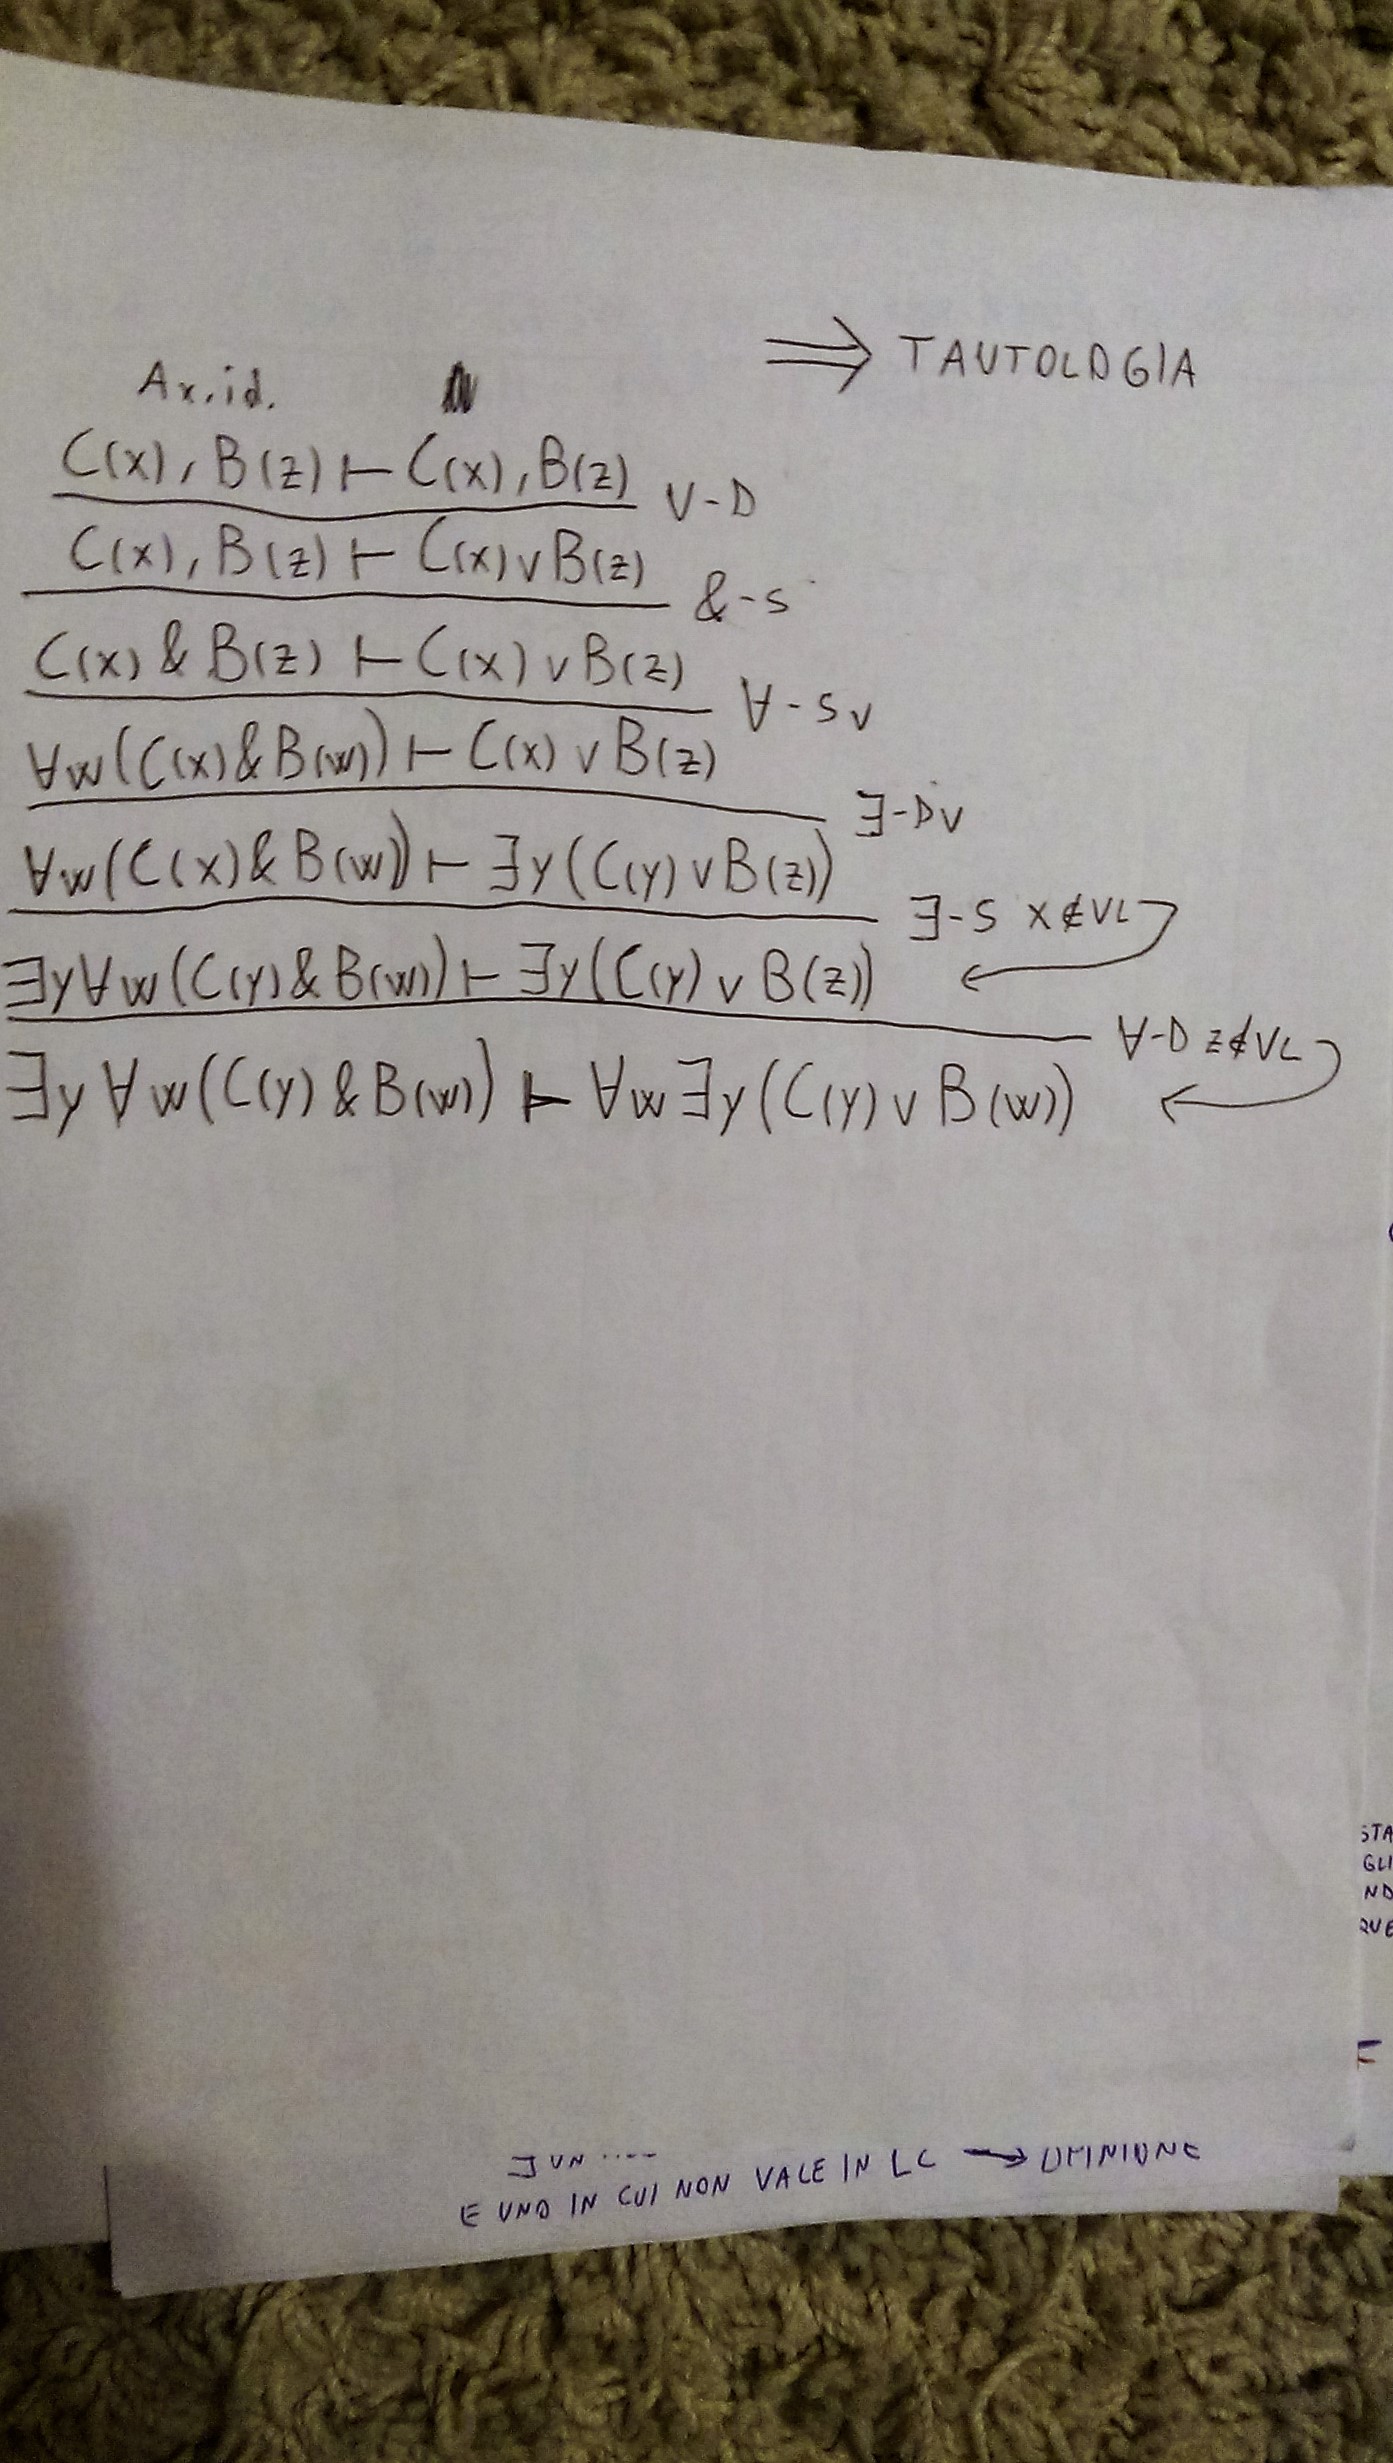 ⟹ TAUTOLOGIA
Ax.id.
C(x), B(z) ⊢ C(x), B(z) ∨-D
C(x), B(z) ⊢ C(x)∨B(z) &-S
C(x) & B(z) ⊢ C(x)∨B(z) ∀-Sv
∀w(C(x)&B(w)) ⊢ C(x)∨B(z) ∃-Dv
∀w(C(x)&B(w)) ⊢ ∃y(C(y)∨B(z)) ∃-S x∉VL
∃y∀w(C(y)&B(w)) ⊢ ∃y(C(y)∨B(z)) ∀-D z∉VL
∃y∀w(C(y)&B(w)) ⊢ ∀w∃y(C(y)∨B(w))
STA
GLI
ND
QUE
F
∃ UN ....
E UNO IN CUI NON VALE IN LC → OPINIONE